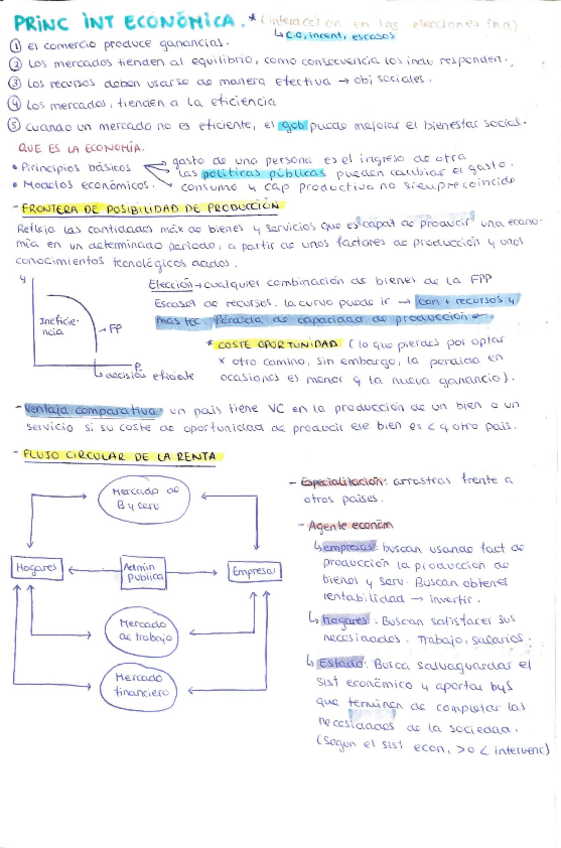 PRINC INT ECONÓMICA. * (interacción en las elecciones ind)
↳ C.O, incent, escasos
① el comercio produce ganancias.
② Los mercados tienden al equilibrio, como consecuencia los indu responden.
③ Los recursos deben usarse de manera efectiva → obj sociales.
④ Los mercados, tienden a la eficiencia
⑤ cuando un mercado no es eficiente, el gob puede mejorar el bienestar social.
QUE ES LA ECONOMÍA.
• Pirincipios básicos
• Modelos económicos.
gasto de una persona es el ingreso de otra
las políticas públicas pueden cambiar el gasto.
consumo y cap productiva no siempre coincide
- FRONTERA DE POSIBILIDAD DE PRODUCCIÓN
Refleja las cantidades máx de bienes y servicios que es capaz de producir una econo-
mía en un determinado periodo, a partir de unos factores de producción y unos
conocimientos tecnológicos dados.
y
Ineficie-
ncia
FP
P
↳ decisión eficiente
Elección → cualquier combinación de bienes de la FPP
Escasez de recursos. La curva puede ir → con + recursos y
más tec. Pérdida de capacidad de producción ←
* COSTE OPORTUNIDAD ( lo que pierdes por optar
x otro camino, sin embargo, la perdida en
ocasiones es menor q la nueva ganancia).
- Ventaja comparativa: un país tiene VC en la producción de un bien o un
servicio si su coste de oportunidad de producir ese bien es < q otro país.
- FLUJO CIRCULAR DE LA RENTA
Mercado de
B y serv
Hogares
Admin
Publica
Empresas
Mercado
de trabajo
Mercado
financiero
- Especialización: arrastras frente a
otros países.
- Agente económ
↳ empresas: buscan usando fact de
producción la producción de
bienes y serv. Buscan obtener
rentabilidad → invertir.
↳ hogares. Buscan satisfacer sus
necesidades. Trabajo, salarios.
↳ Estado: Busca salvaguardar el
sist económico y aportar bys
que terminen de completar las
necesidades de la sociedad.
(Según el sist econ, > o < intervenc)